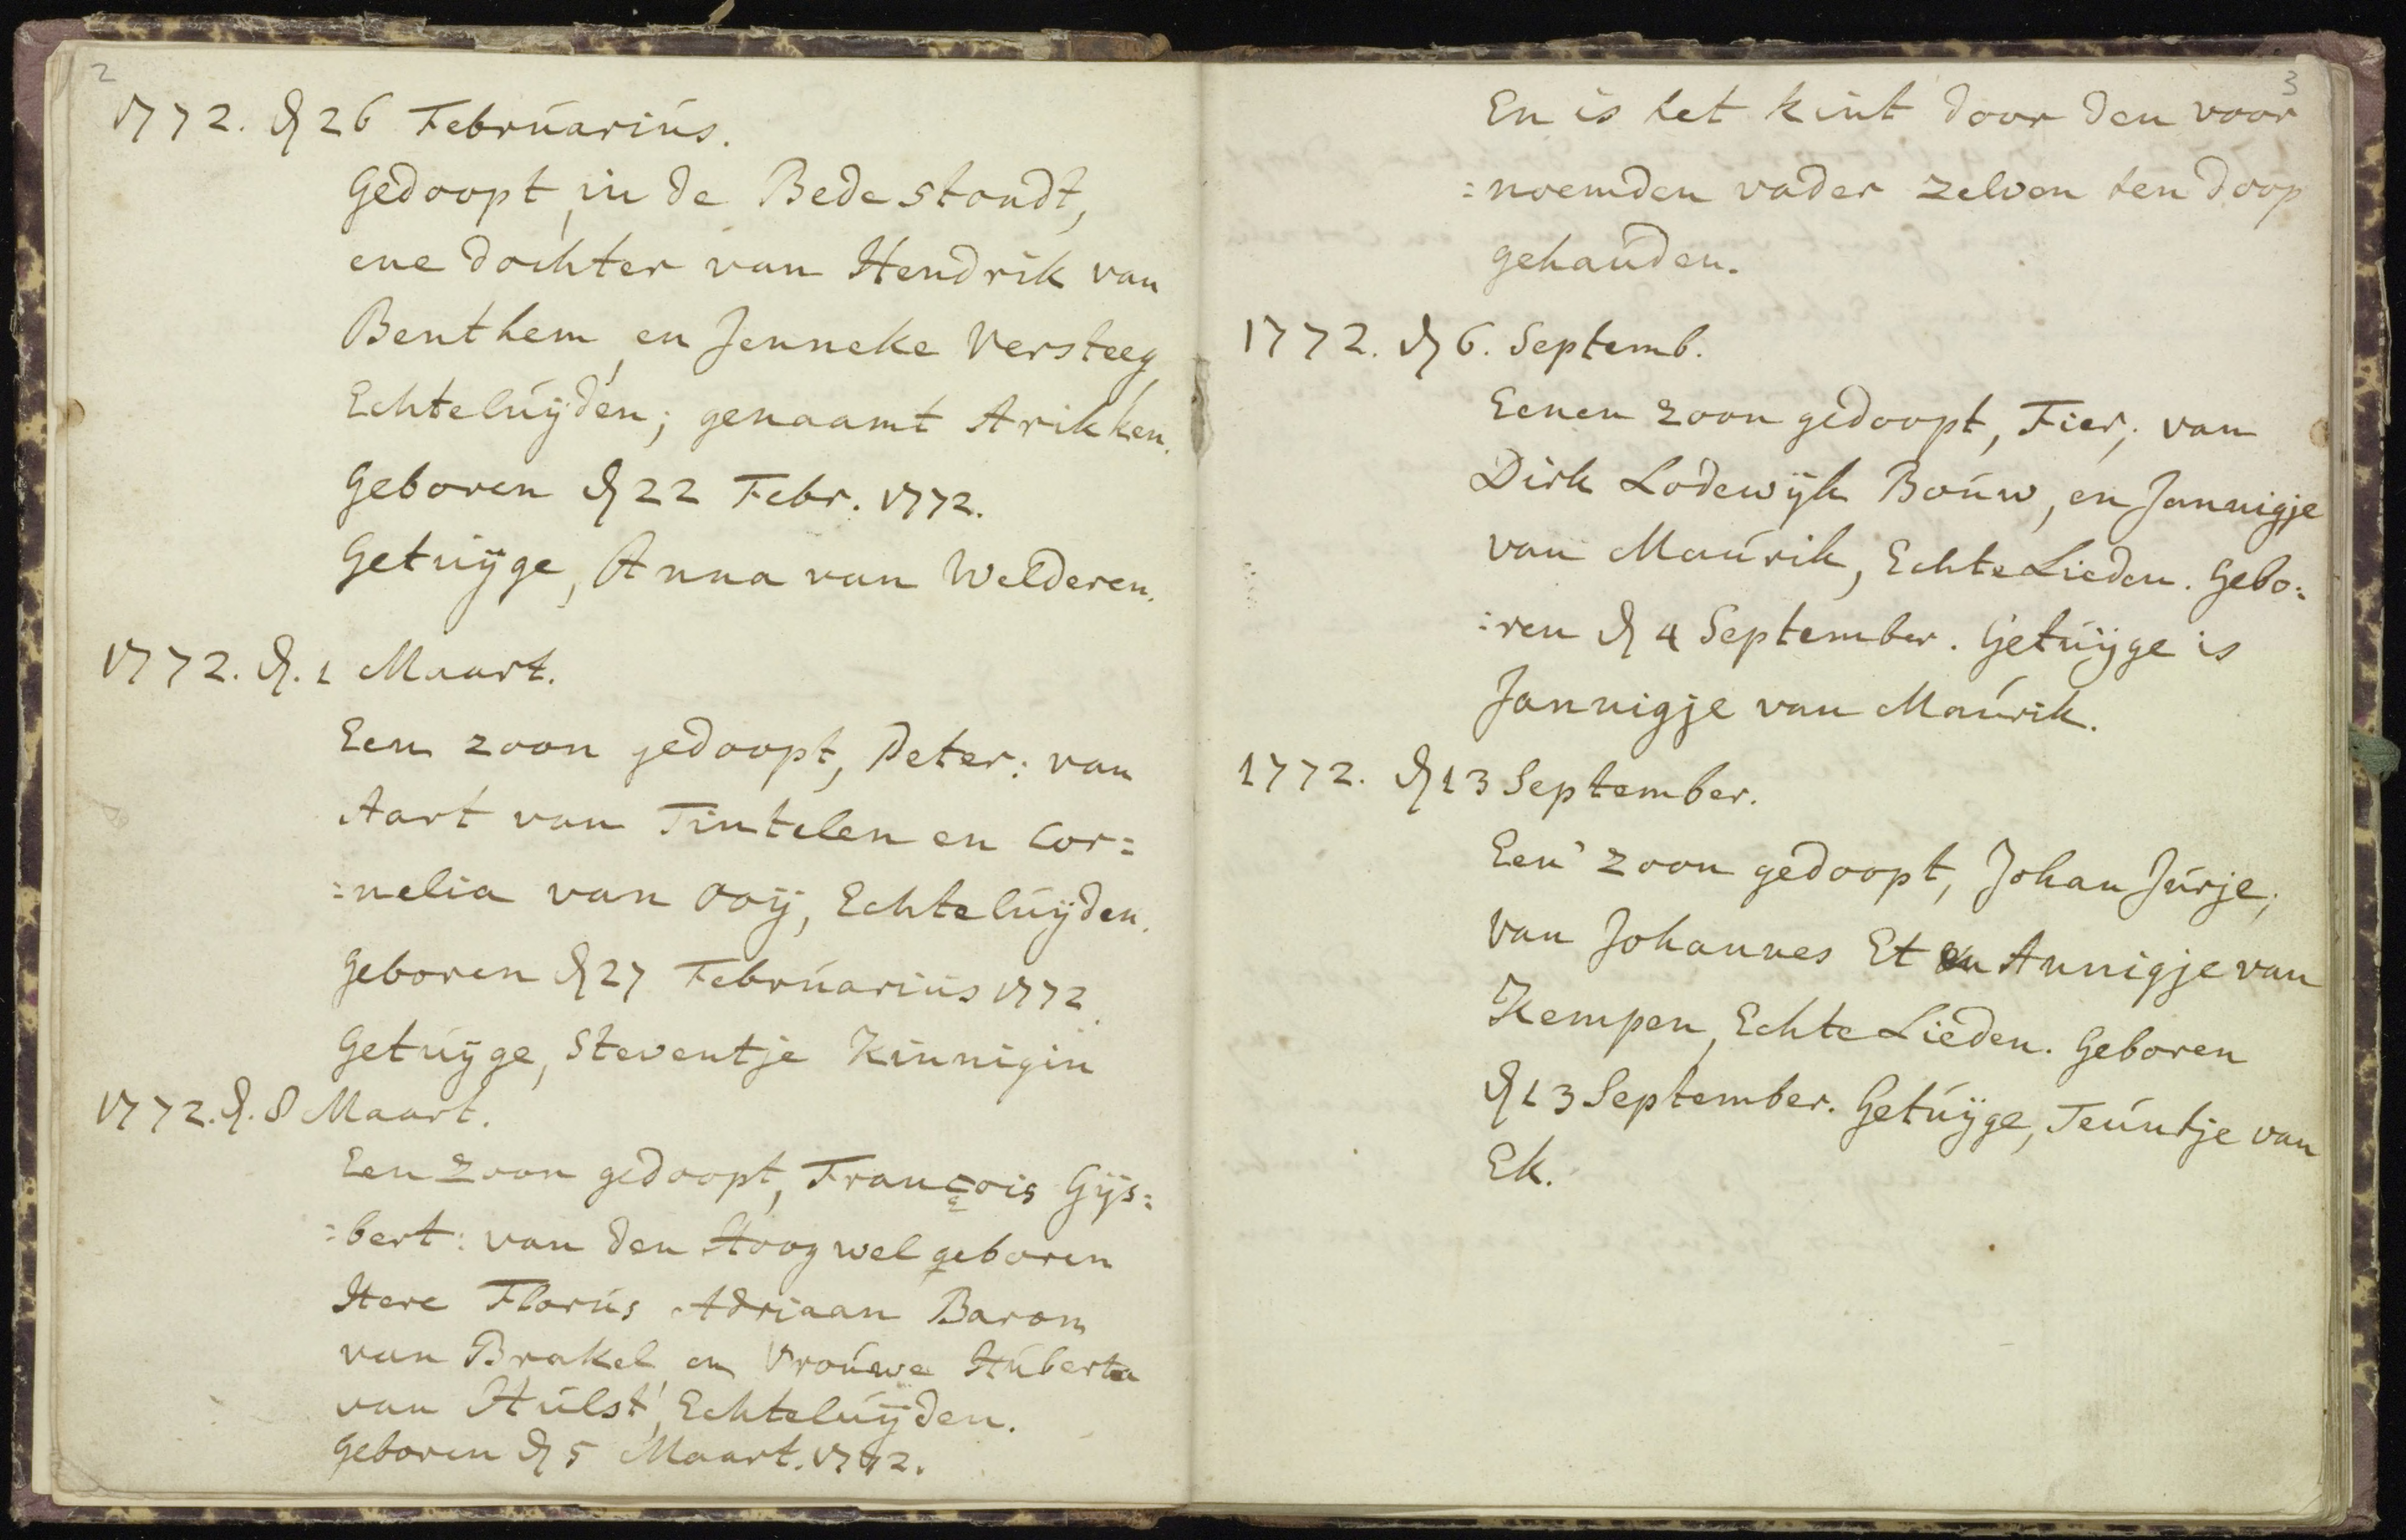 2
1772. d 26 Februarius.
Gedoopt, in de Bedestondt,
ene dochter van Hendrik van
Benthem, en Jenneke Versteeg,
Echteluÿden; genaamt Arikken.
Geboren d 22 Febr. 1772.
Getuÿge, Anna van Welderen.
1772. d. 1 Maart.
Een zoon gedoopt, Peter: van
Aart van Tintelen en Cor=
=nelia van Ooÿ, Echteluÿden.
Geboren d 27 Februarius 1772.
Getuÿge, Steventje Kinnigin
1772. d. 8 Maart.
Een zoon gedoopt, François Gÿs=
=bert: van den Hoog wel geboren
Here Florus Adriaan Baron
van Brakel en Vrouwe Huberta
van Hulst, Echteluÿden.
Geboren d 5 Maart. 1772.
3
En is het kint door den voor
=noemden vader zelven ten doop
gehauden.
1772. d 6. Septemb.
Eenen zoon gedoopt, Fier; van
Dirk Lodewÿk Bouw, en Jannigje
van Maurik, Echte Lieden. Gebo=
=ren d 4 September. Getuÿge is
Jannigje van Maurik.
1772. d 13 September.
Een' zoon gedoopt, Johan Jurje;
van Johannes Et en Annigje van
Kempen, Echte Lieden. Geboren
d 13 September. Getuÿge, Teuntje van
Ek.